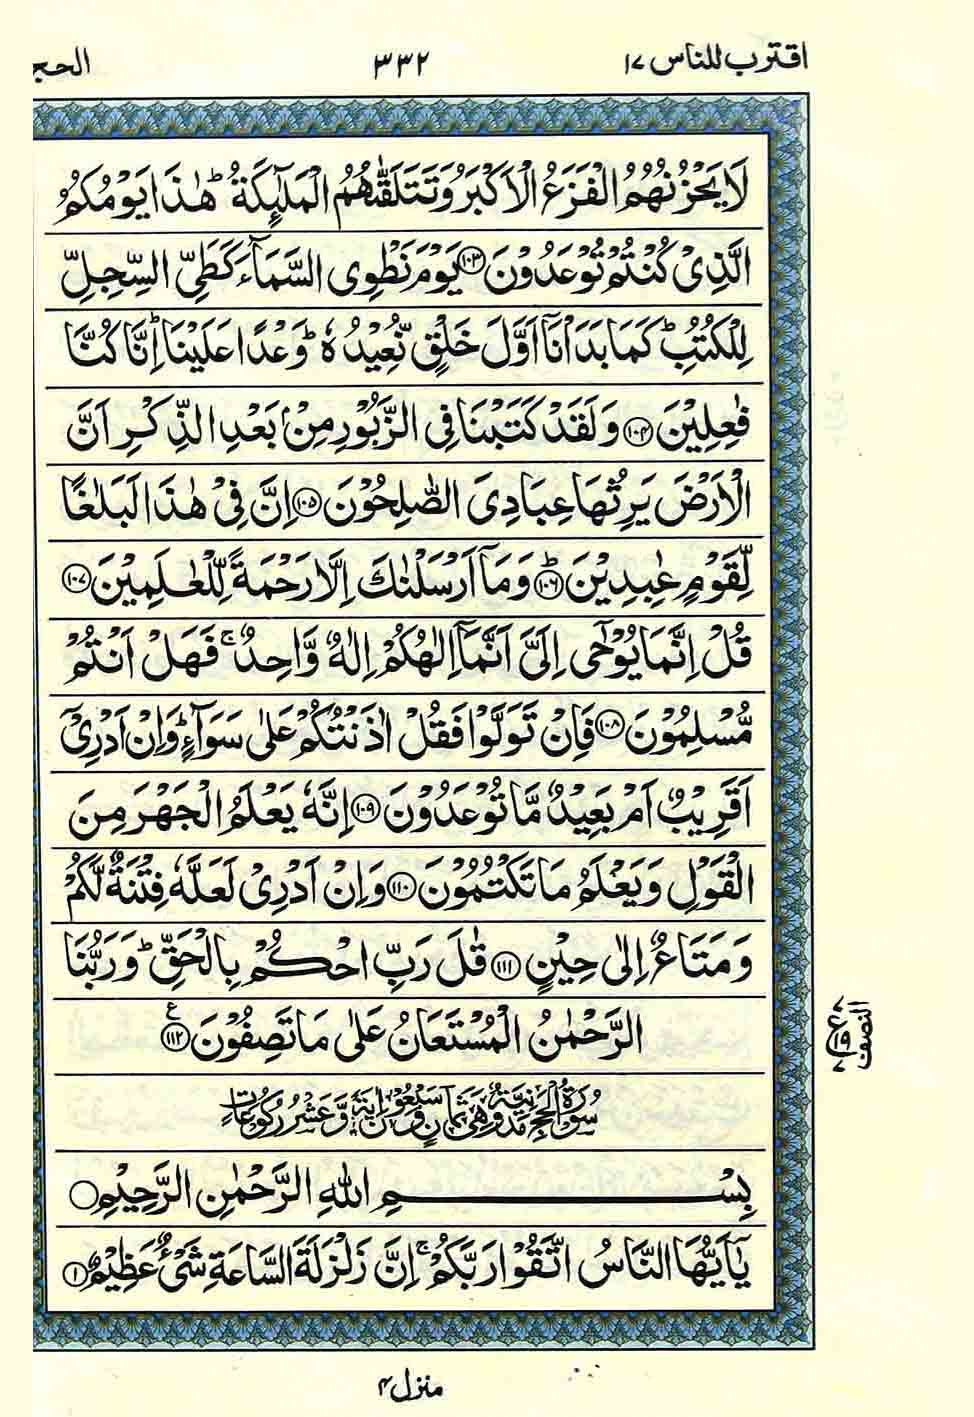 اقترب للناس ۱۷
۳۳۲
الحج
لَا يَحْزُنُهُمُ الْفَزَعُ الْاَكْبَرُ وَتَتَلَقّٰىهُمُ الْمَلٰٓئِكَةُ ؕ هٰذَا يَوْمُكُمُ
الَّذِىْ كُنْتُمْ تُوْعَدُوْنَ ﴿۱۰۳﴾ يَوْمَ نَطْوِى السَّمَآءَ كَطَىِّ السِّجِلِّ
لِلْكُتُبِ ؕ كَمَا بَدَاْنَاۤ اَوَّلَ خَلْقٍ نُّعِيْدُهٗ ؕ وَعْدًا عَلَيْنَا ؕ اِنَّا كُنَّا
فٰعِلِيْنَ ﴿۱۰۴﴾ وَلَقَدْ كَتَبْنَا فِى الزَّبُوْرِ مِنْۢ بَعْدِ الذِّكْرِ اَنَّ
الْاَرْضَ يَرِثُهَا عِبَادِىَ الصّٰلِحُوْنَ ﴿۱۰۵﴾ اِنَّ فِىْ هٰذَا لَبَلٰغًا
لِّقَوْمٍ عٰبِدِيْنَ ؕ ﴿۱۰۶﴾ وَمَاۤ اَرْسَلْنٰكَ اِلَّا رَحْمَةً لِّلْعٰلَمِيْنَ ﴿۱۰۷﴾
قُلْ اِنَّمَا يُوْحٰۤى اِلَىَّ اَنَّمَاۤ اِلٰهُكُمْ اِلٰهٌ وَّاحِدٌ ۚ فَهَلْ اَنْتُمْ
مُّسْلِمُوْنَ ﴿۱۰۸﴾ فَاِنْ تَوَلَّوْا فَقُلْ اٰذَنْتُكُمْ عَلٰى سَوَآءٍ ؕ وَاِنْ اَدْرِىْۤ
اَقَرِيْبٌ اَمْ بَعِيْدٌ مَّا تُوْعَدُوْنَ ﴿۱۰۹﴾ اِنَّهٗ يَعْلَمُ الْجَهْرَ مِنَ
الْقَوْلِ وَيَعْلَمُ مَا تَكْتُمُوْنَ ﴿۱۱۰﴾ وَاِنْ اَدْرِىْ لَعَلَّهٗ فِتْنَةٌ لَّكُمْ
وَمَتَاعٌ اِلٰى حِيْنٍ ﴿۱۱۱﴾ قٰلَ رَبِّ احْكُمْ بِالْحَقِّ ؕ وَرَبُّنَا
الرَّحْمٰنُ الْمُسْتَعَانُ عَلٰى مَا تَصِفُوْنَ ﴿۱۱۲﴾ ع
النصف
سُوْرَةُ الْحَجِّ مَدَنِيَّةٌ وَّهِىَ ثَمَانٍ وَّسَبْعُوْنَ اٰيَةً وَّعَشْرُ رُكُوْعَاتٍ
بِسْمِ اللّٰهِ الرَّحْمٰنِ الرَّحِيْمِ
يٰۤاَيُّهَا النَّاسُ اتَّقُوْا رَبَّكُمْ ۚ اِنَّ زَلْزَلَةَ السَّاعَةِ شَىْءٌ عَظِيْمٌ ﴿۱﴾
منزل ۴